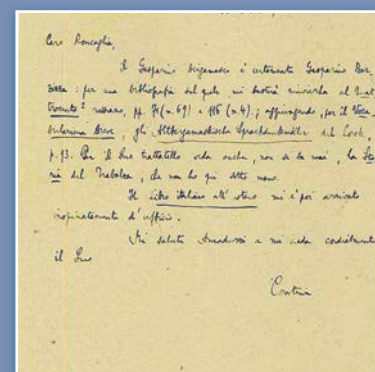 Caro Roncaglia,
Il Gasparino bergamasco è certamente Gasparino Bar-
zizza: per una bibliografia sul quale mi basterà rinviarla al Quat-
trocento² rossiano, pp. 71 (n. 69) e 116 (n. 4); aggiungendo, per il Voca-
bularium breve, gli Altbergamaskische Sprachdenkmäler del Lorck,
p. 93. Per il Suo trattatello veda anche, non si sa mai, la Sto-
ria del Trabalza, che non ho qui sotto mano.
Il Libro italiano all'estero mi è poi arrivato
inopinatamente d'ufficio.
Mi saluti Amadussi e mi creda cordialmente
il Suo
Contini